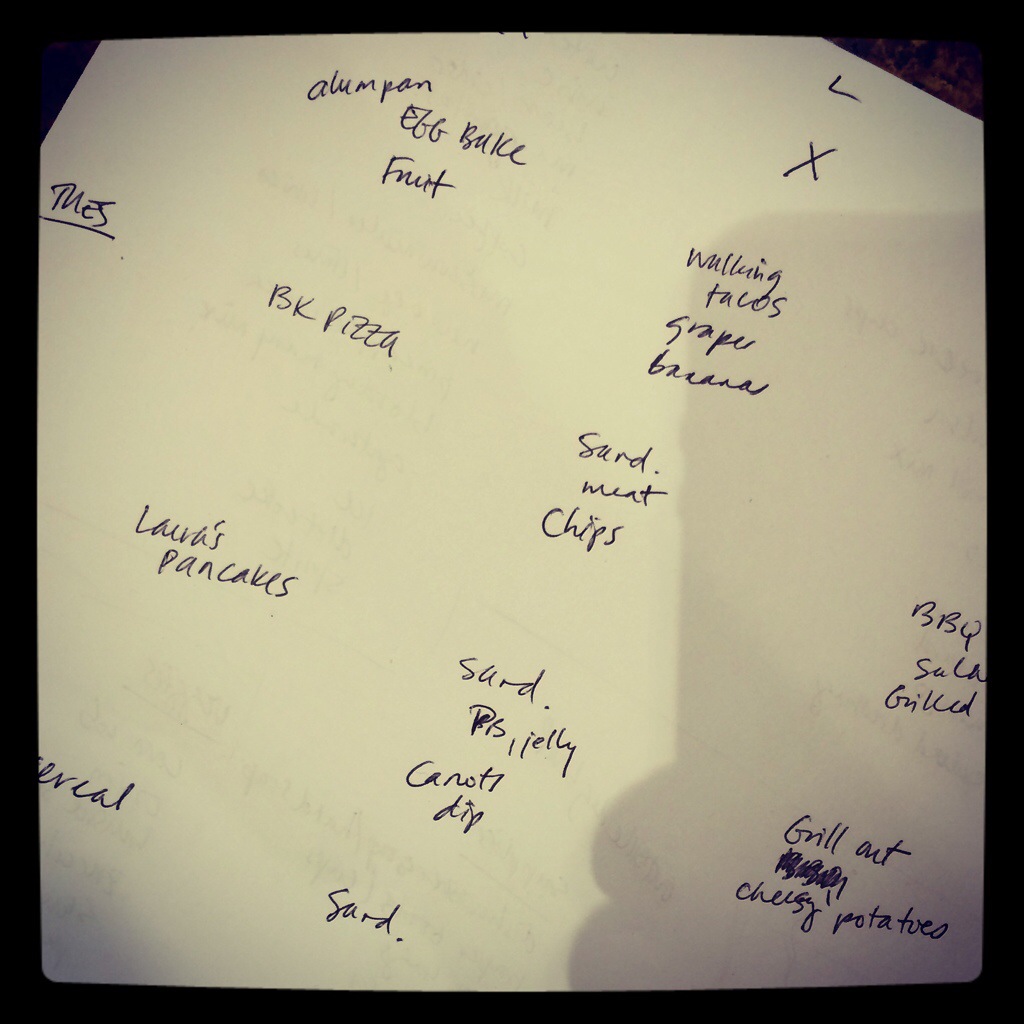 alumpan
EGG BAKE
Fruit
L
X
TUES
BK PIZZA
walking
tacos
grapes
bananas
Sand.
meat
Chips
Laura's
Pancakes
BBQ
Sala
Grilled
Sand.
PB, jelly
Carrots
dip
ereal
Grill out
cheesy potatoes
Sand.